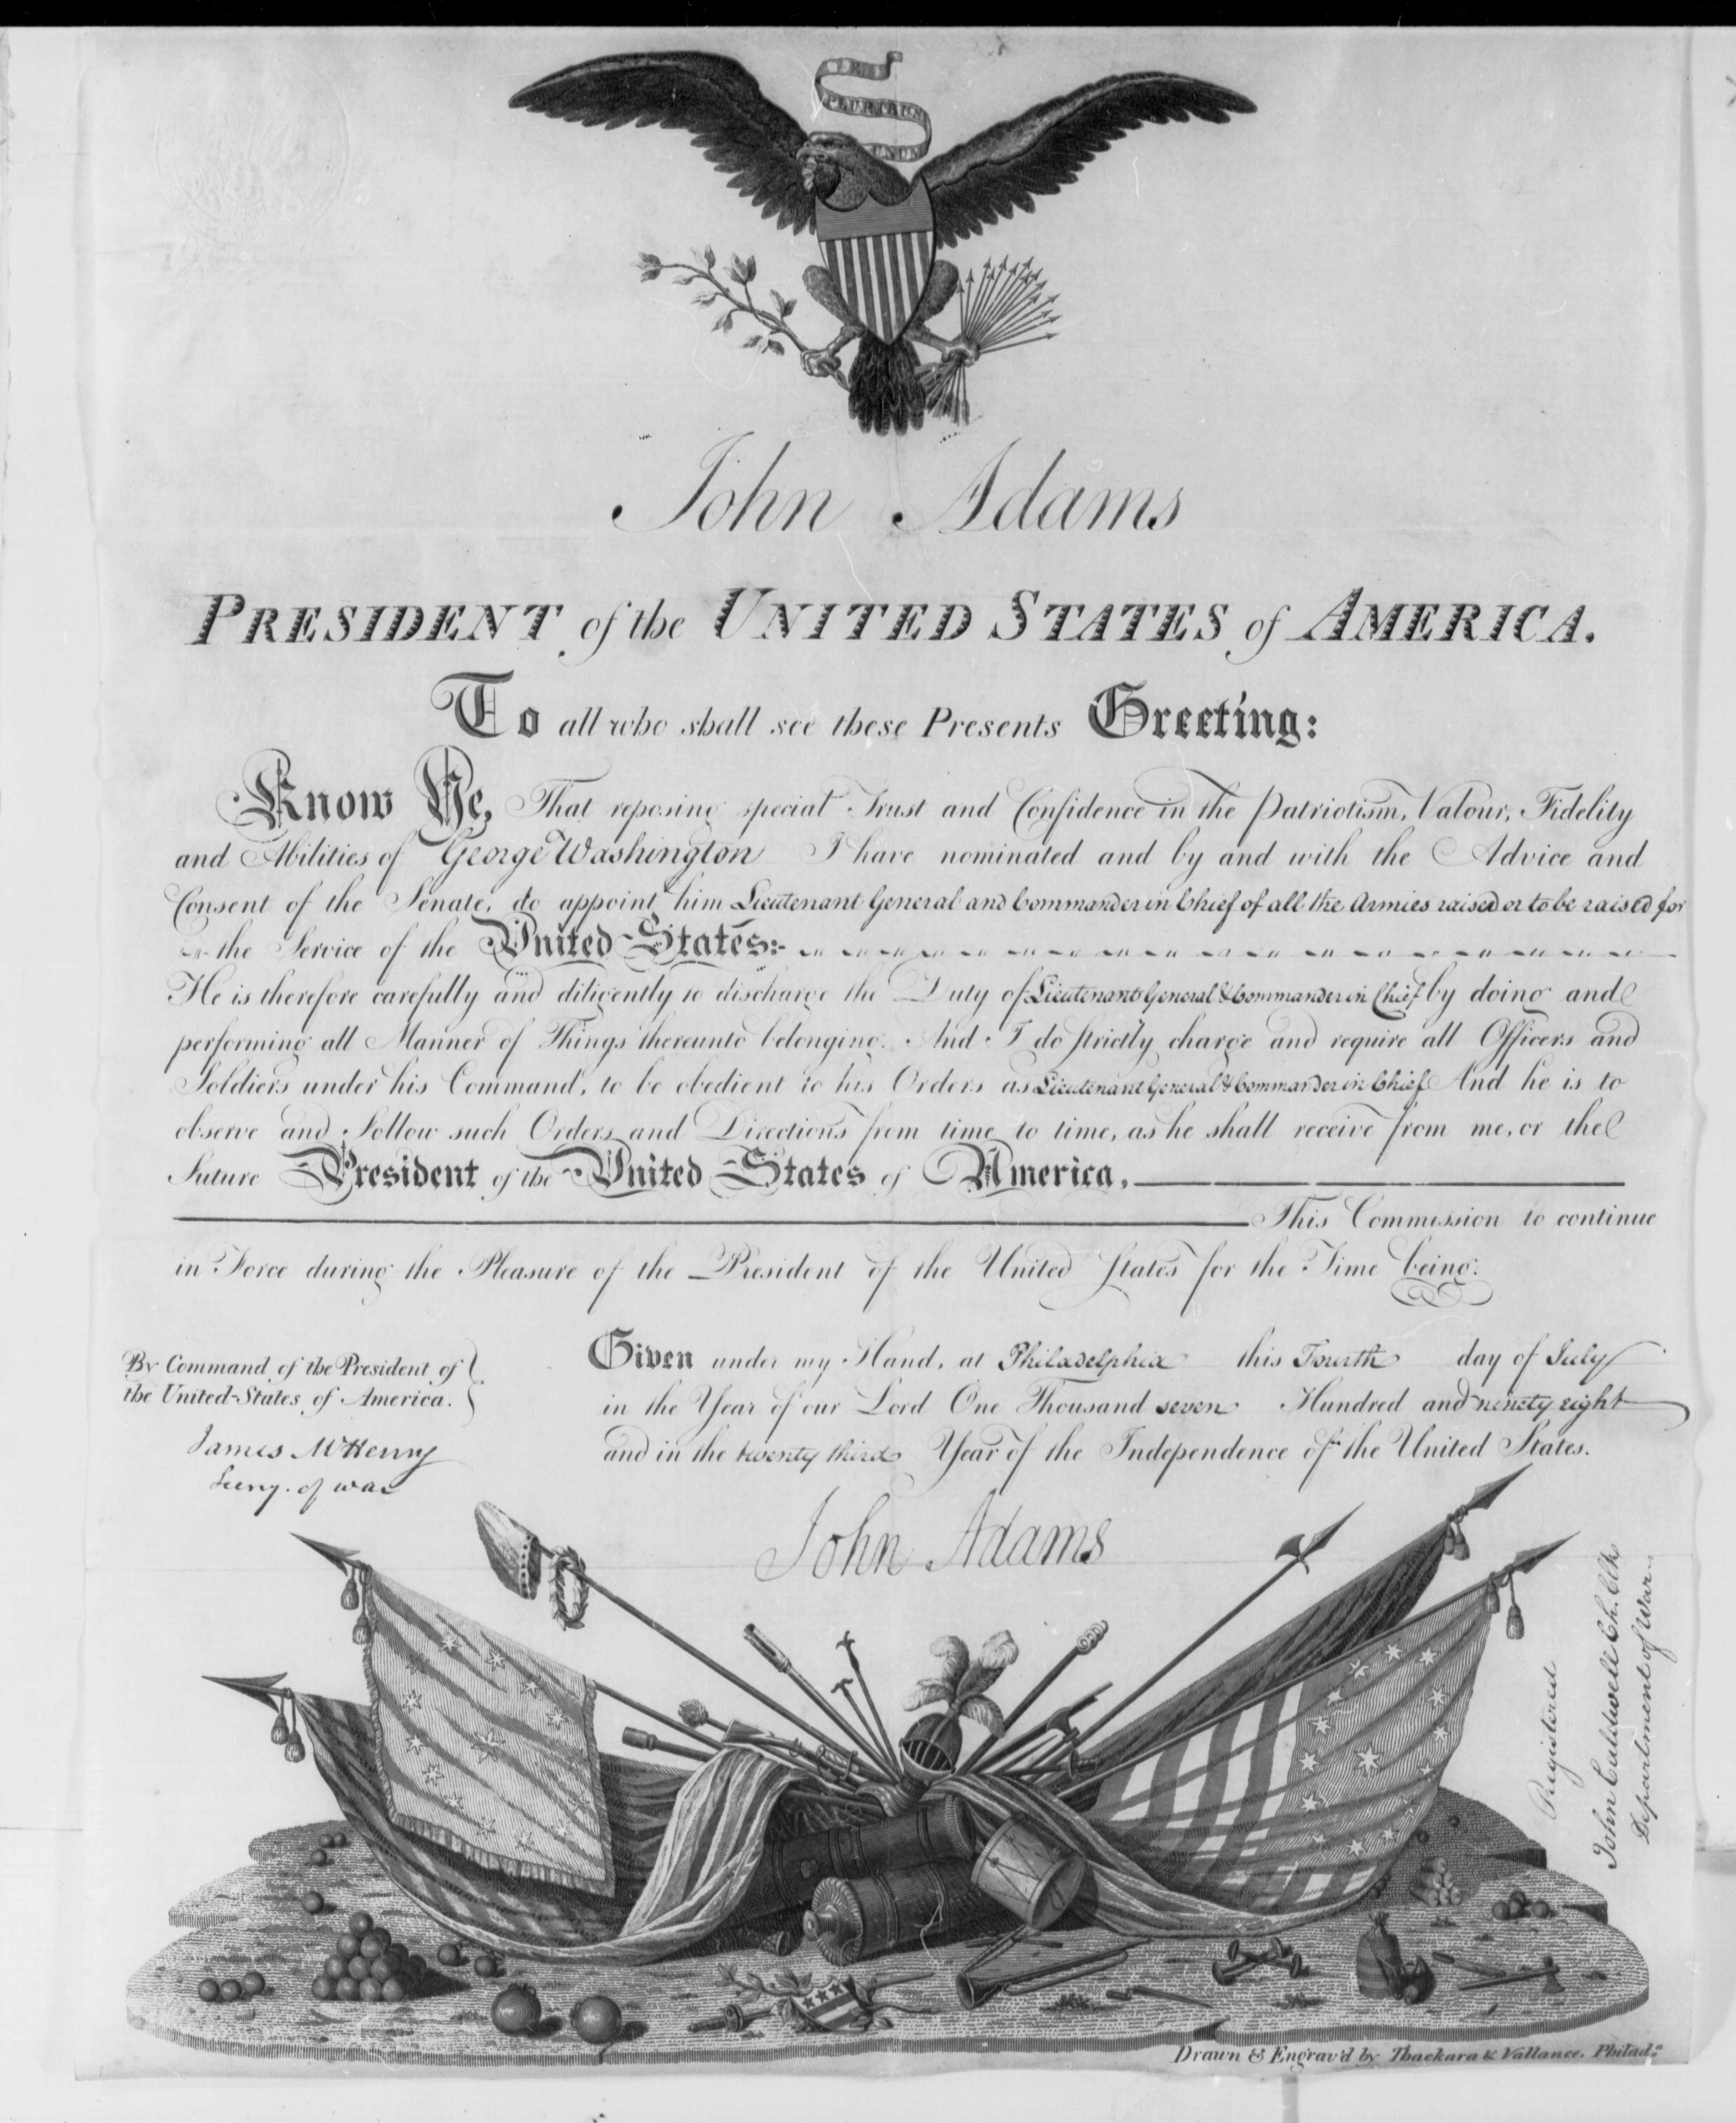 E PLURIBUS UNUM
John Adams
PRESIDENT of the UNITED STATES of AMERICA.
To all who shall see these Presents Greeting:
Know Ye, That reposing special Trust and Confidence in the Patriotism, Valour, Fidelity
and Abilities of George Washington I have nominated and by and with the Advice and
Consent of the Senate, do appoint him Lieutenant General and Commander in Chief of all the Armies raised or to be raised for
the Service of the United States:
He is therefore carefully and diligently to discharge the Duty of Lieutenant General & Commander in Chief by doing and
performing all Manner of Things thereunto belonging. And I do strictly charge and require all Officers and
Soldiers under his Command, to be obedient to his Orders as Lieutenant General & Commander in Chief And he is to
observe and follow such Orders and Directions from time to time, as he shall receive from me, or the
future President of the United States of America,
This Commission to continue
in Force during the Pleasure of the President of the United States for the Time being.
Given under my Hand, at Philadelphia this Fourth day of July
in the Year of our Lord One Thousand seven Hundred and ninety eight
and in the twenty third Year of the Independence of the United States.
By Command of the President of
the United-States of America.
James McHenry
Secry. of war
John Adams
Registered
John Caldwell Ch. Clk
Department of War
Drawn & Engrav'd by Thackara & Vallance. Philada.